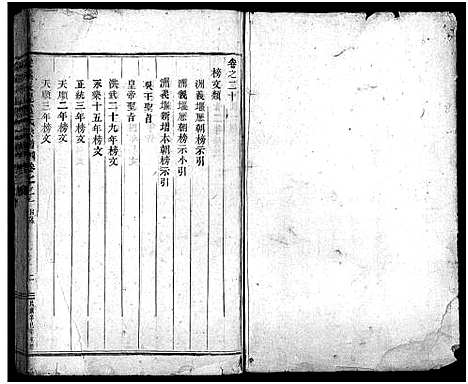 卷之二十
榜文類
洲義堰歷朝榜示引
洲義堰歷朝榜示小引
洲義堰新增本朝榜示引
吳王聖旨
皇帝聖旨
洪武二十九年榜文
永樂十五年榜文
正統三年榜文
天順二年榜文
天順三年榜文